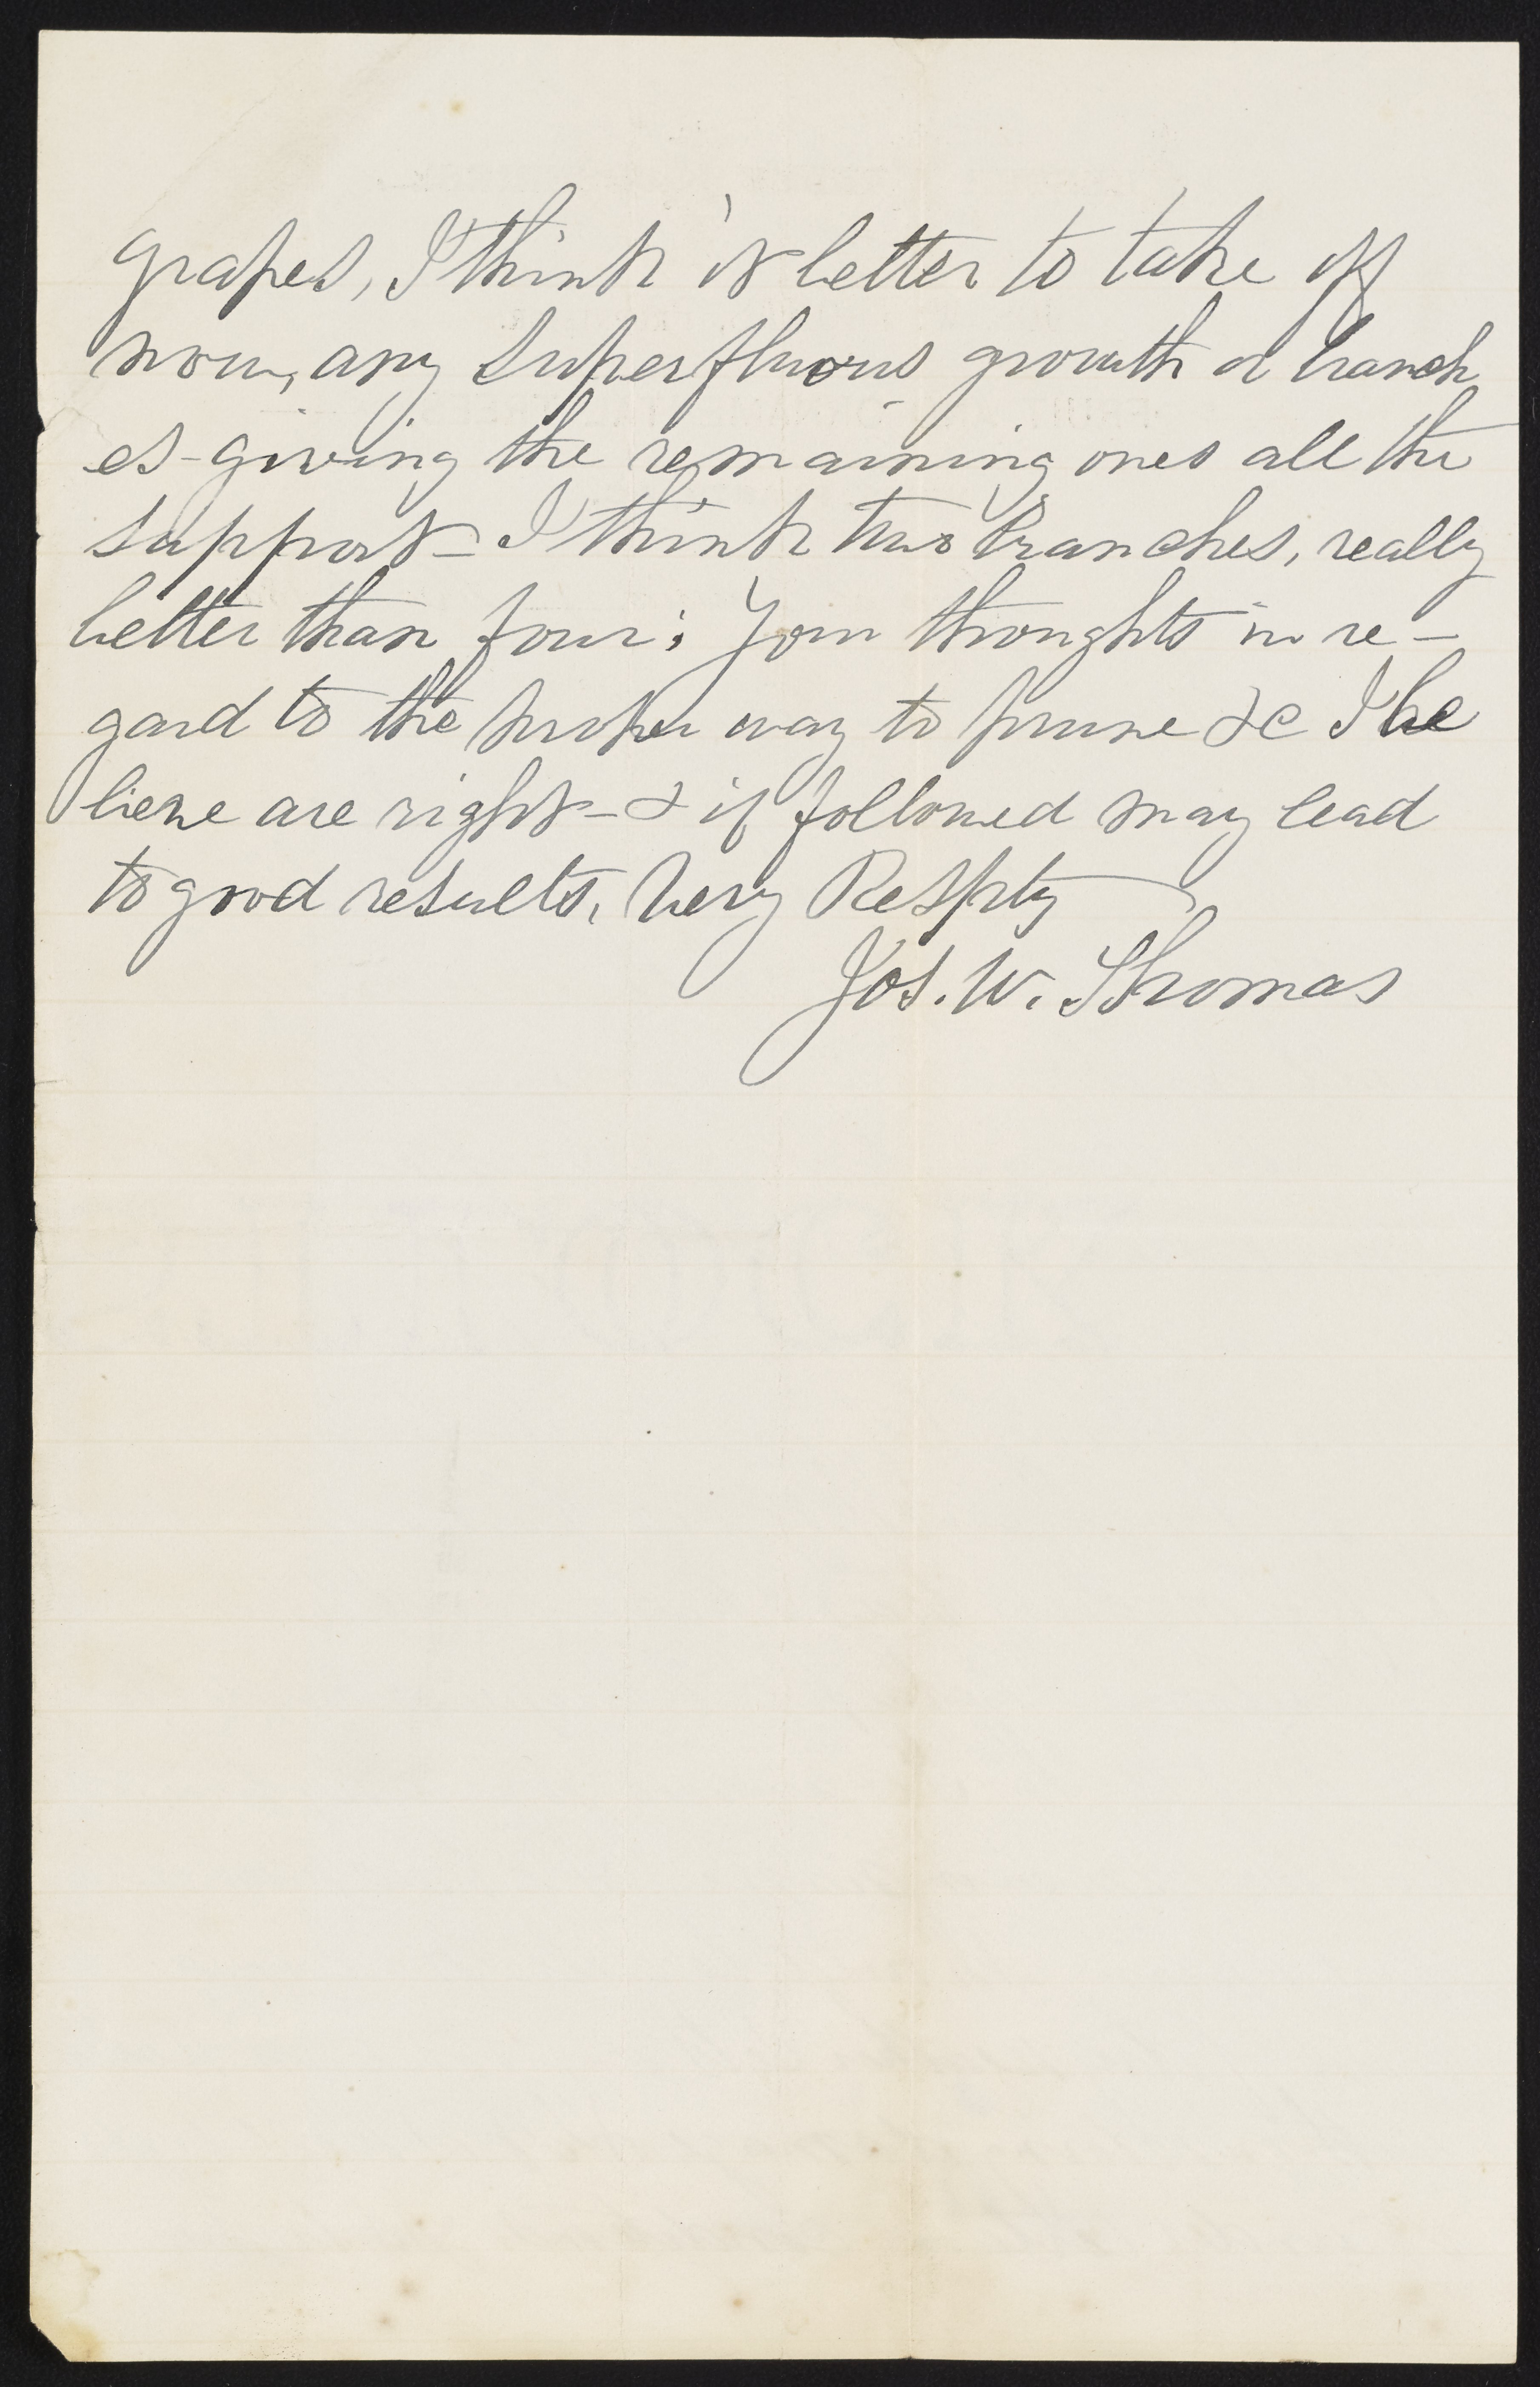 grapes, I think it better to take off
now, any superfluous growth or branch
es - giving the remaining ones all the
support - I think two branches, really
better than four; Your thoughts in re-
gard to the proper way to prune &c I be
lieve are right - & if followed may lead
to good results, Very Respty
Jos. W. Thomas